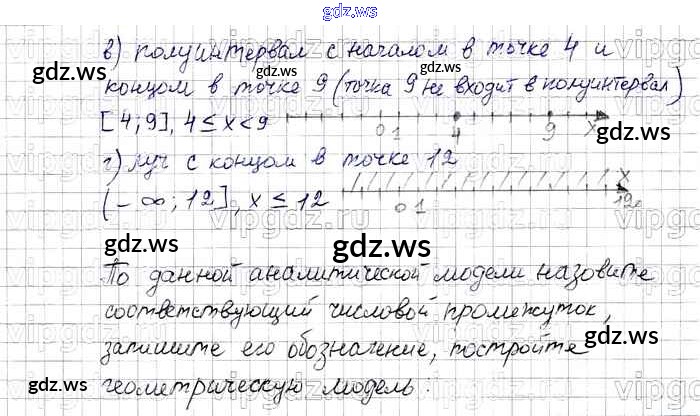 gdz.ws
в) полуинтервал с началом в точке 4 и
концом в точке 9 (точка 9 не входит в полуинтервал)
[4; 9], 4 ≤ x < 9
0 1 4 9 x
г) луч с концом в точке 12
(-∞; 12], x ≤ 12
0 1 12 x
По данной аналитической модели назовите
соответствующий числовой промежуток,
запишите его обозначение, постройте
геометрическую модель:
gdz.ws
gdz.ws
gdz.ws
gdz.ws
gdz.ws
gdz.ws
gdz.ws
gdz.ws
gdz.ws